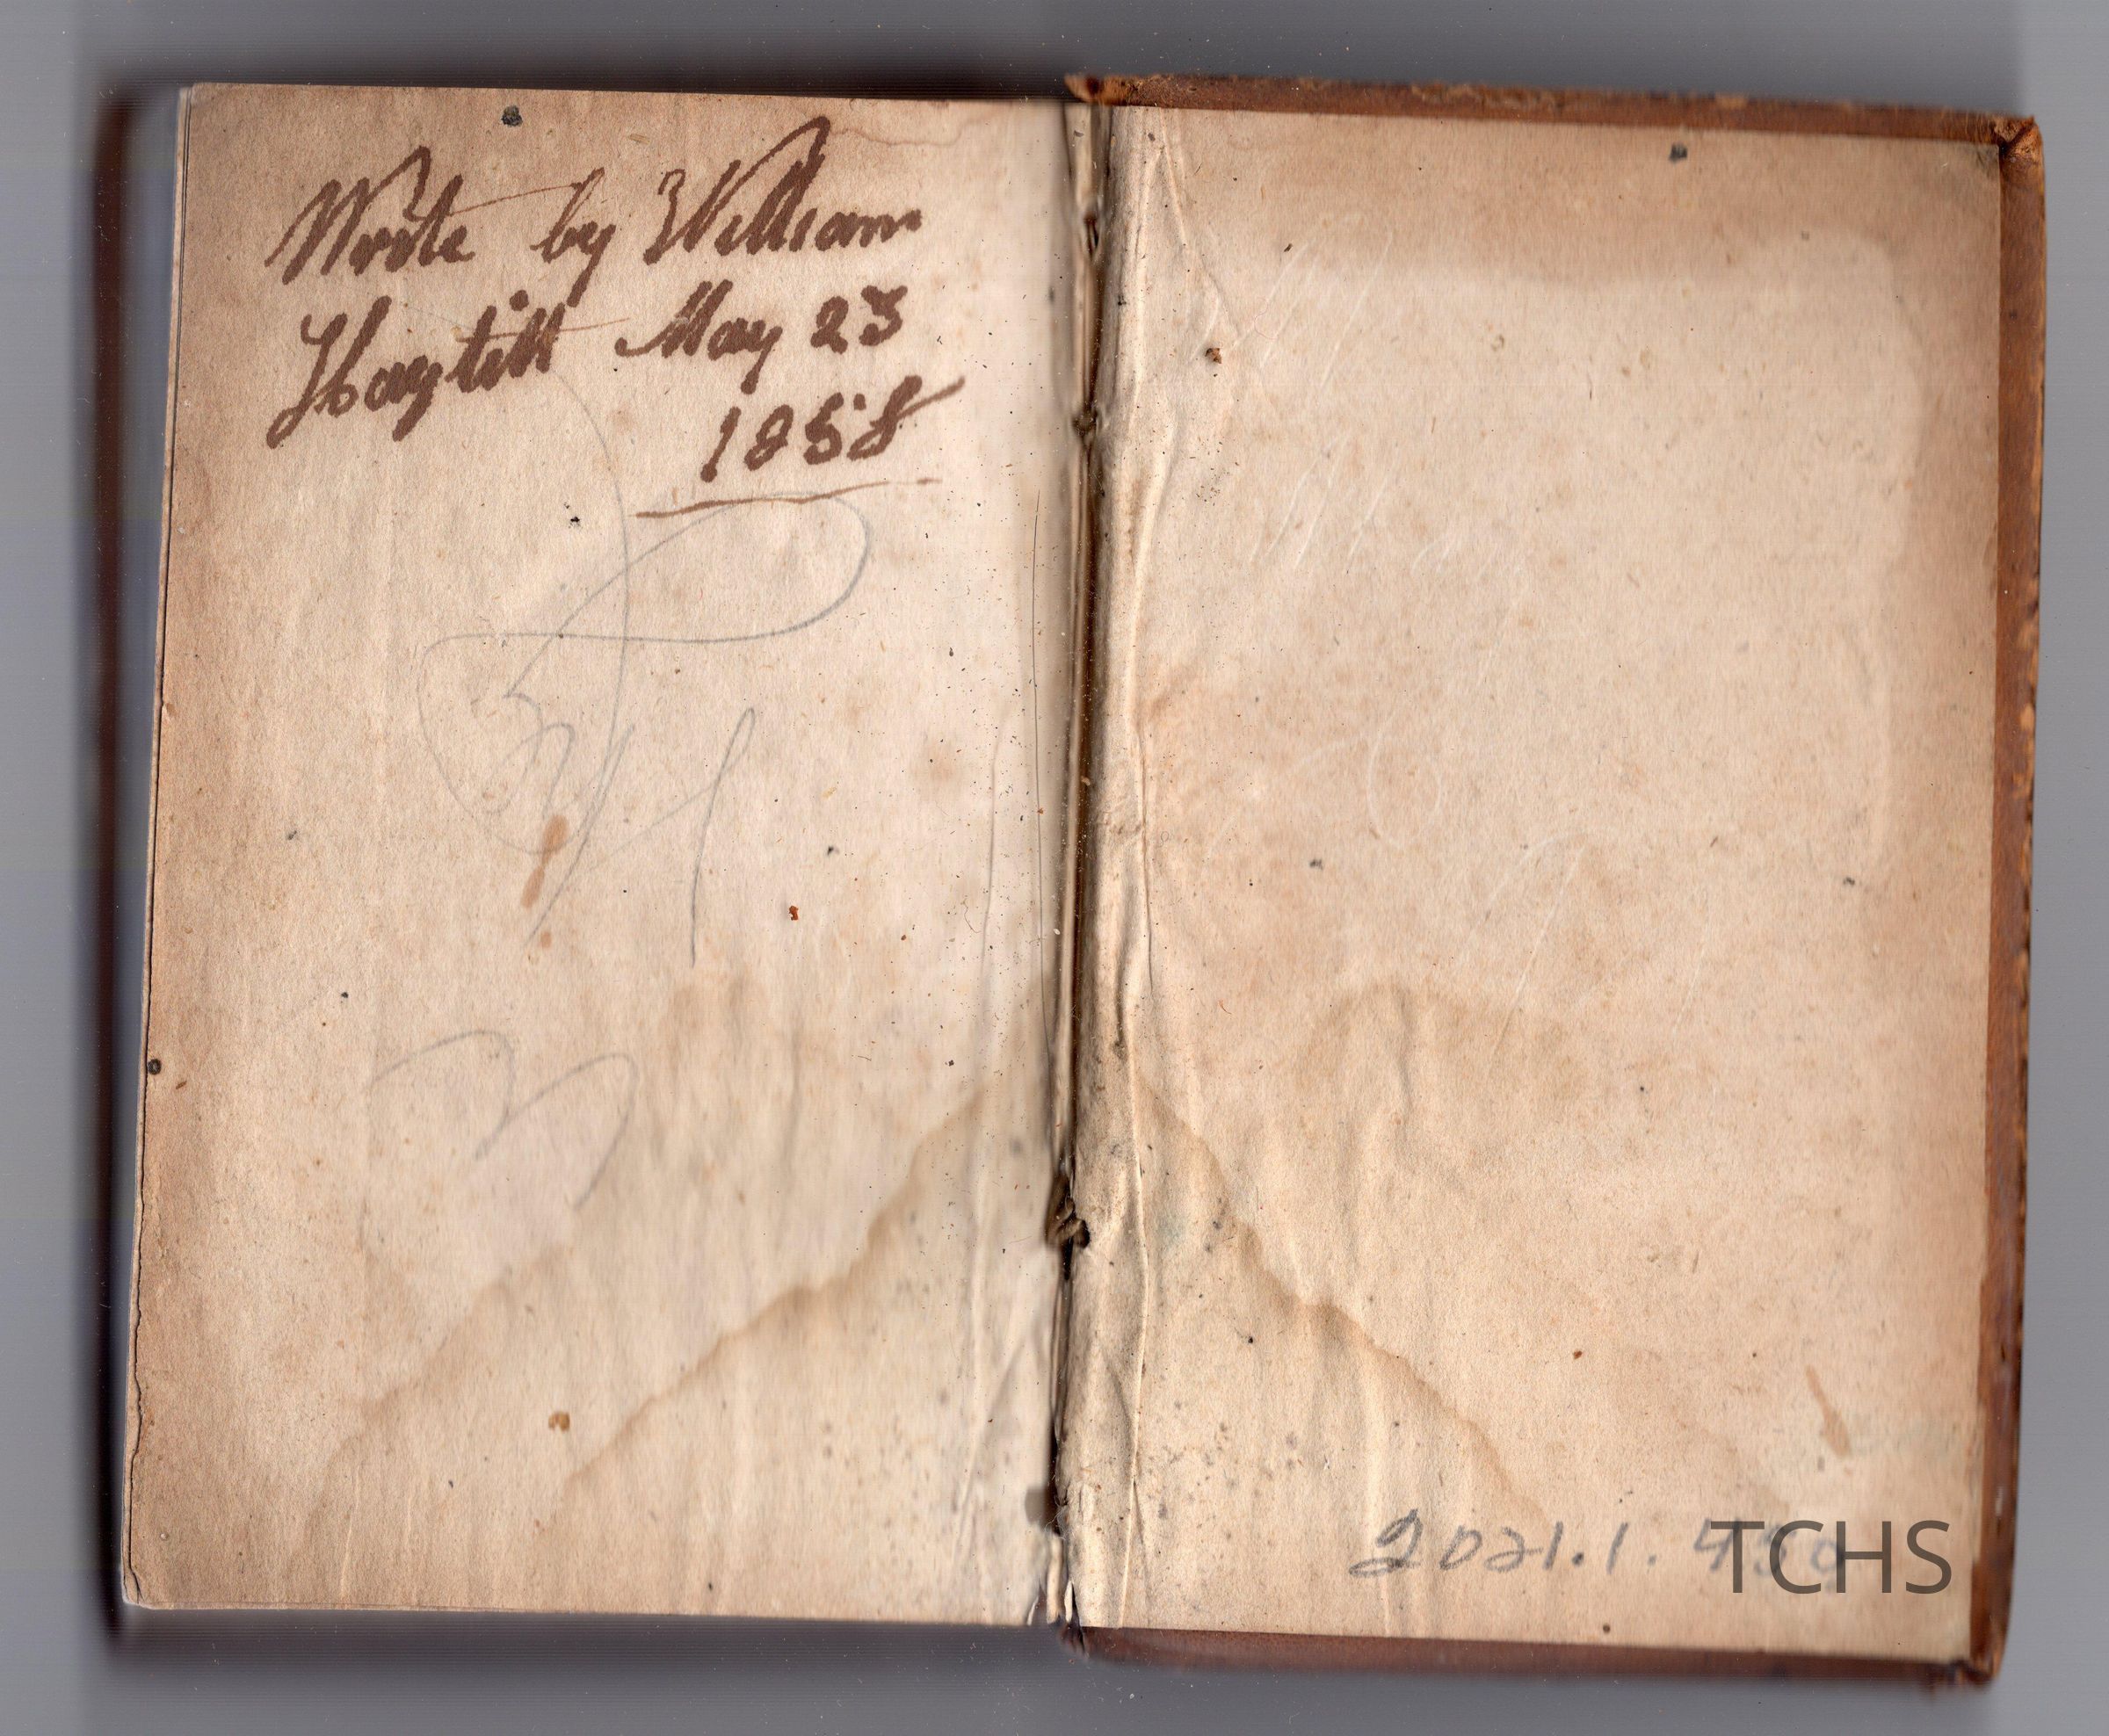 Wrote by William
Haytitt May 23
1858
2021.1.430
TCHS